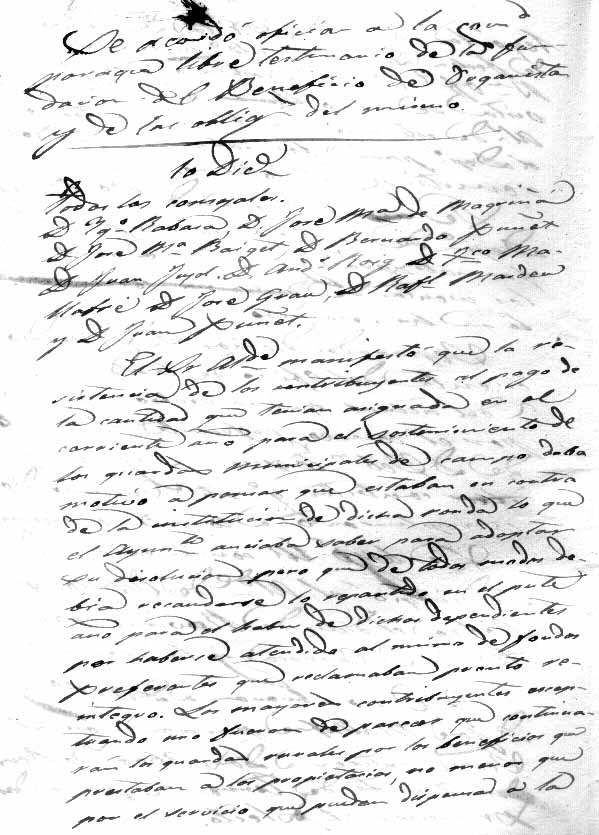 Se acordó oficiar a la Com.d
paraque libre testimonio de la fun-
dacion del Beneficio de Organista
y de las oblig.s del mismo.
10 Dic.e
Todos los concejales.
D. Ygº Rabasa, D. José Mª de Magriñá
D. José Mª Baiget, D. Bernardo Xuñet
D. Juan Jujol, D. And.s Roig D. Fco Ma-
llafré D. José Grau, D. Raf.l Marden
y D. Juan Xuñet.
El Sr Alde manifestó que la re-
sistencia de los contribuyentes el pago de
la cantidad que tenian asignada en el
corriente año para el sostenimiento de
los guardas municipales de campo daba
motivo a pensar que estaban en contra
de la institucion de dicha ronda lo que
el Ayun.to ansiaba saber para adoptar
su disolucion pero que de todos modos de-
bia recaudarse lo repartido en el pnte
año para el haber de dichos dependientes
por haberse atendido al mismo de fondos
preferentes que reclamaban pronto re-
integro. Los mayores contribuyentes escep-
tuando uno fueron de parecer que continua-
rán los guardas rurales por los beneficios que
prestaban a los propietarios, no menos que
por el servicio que pueden dispensar a la